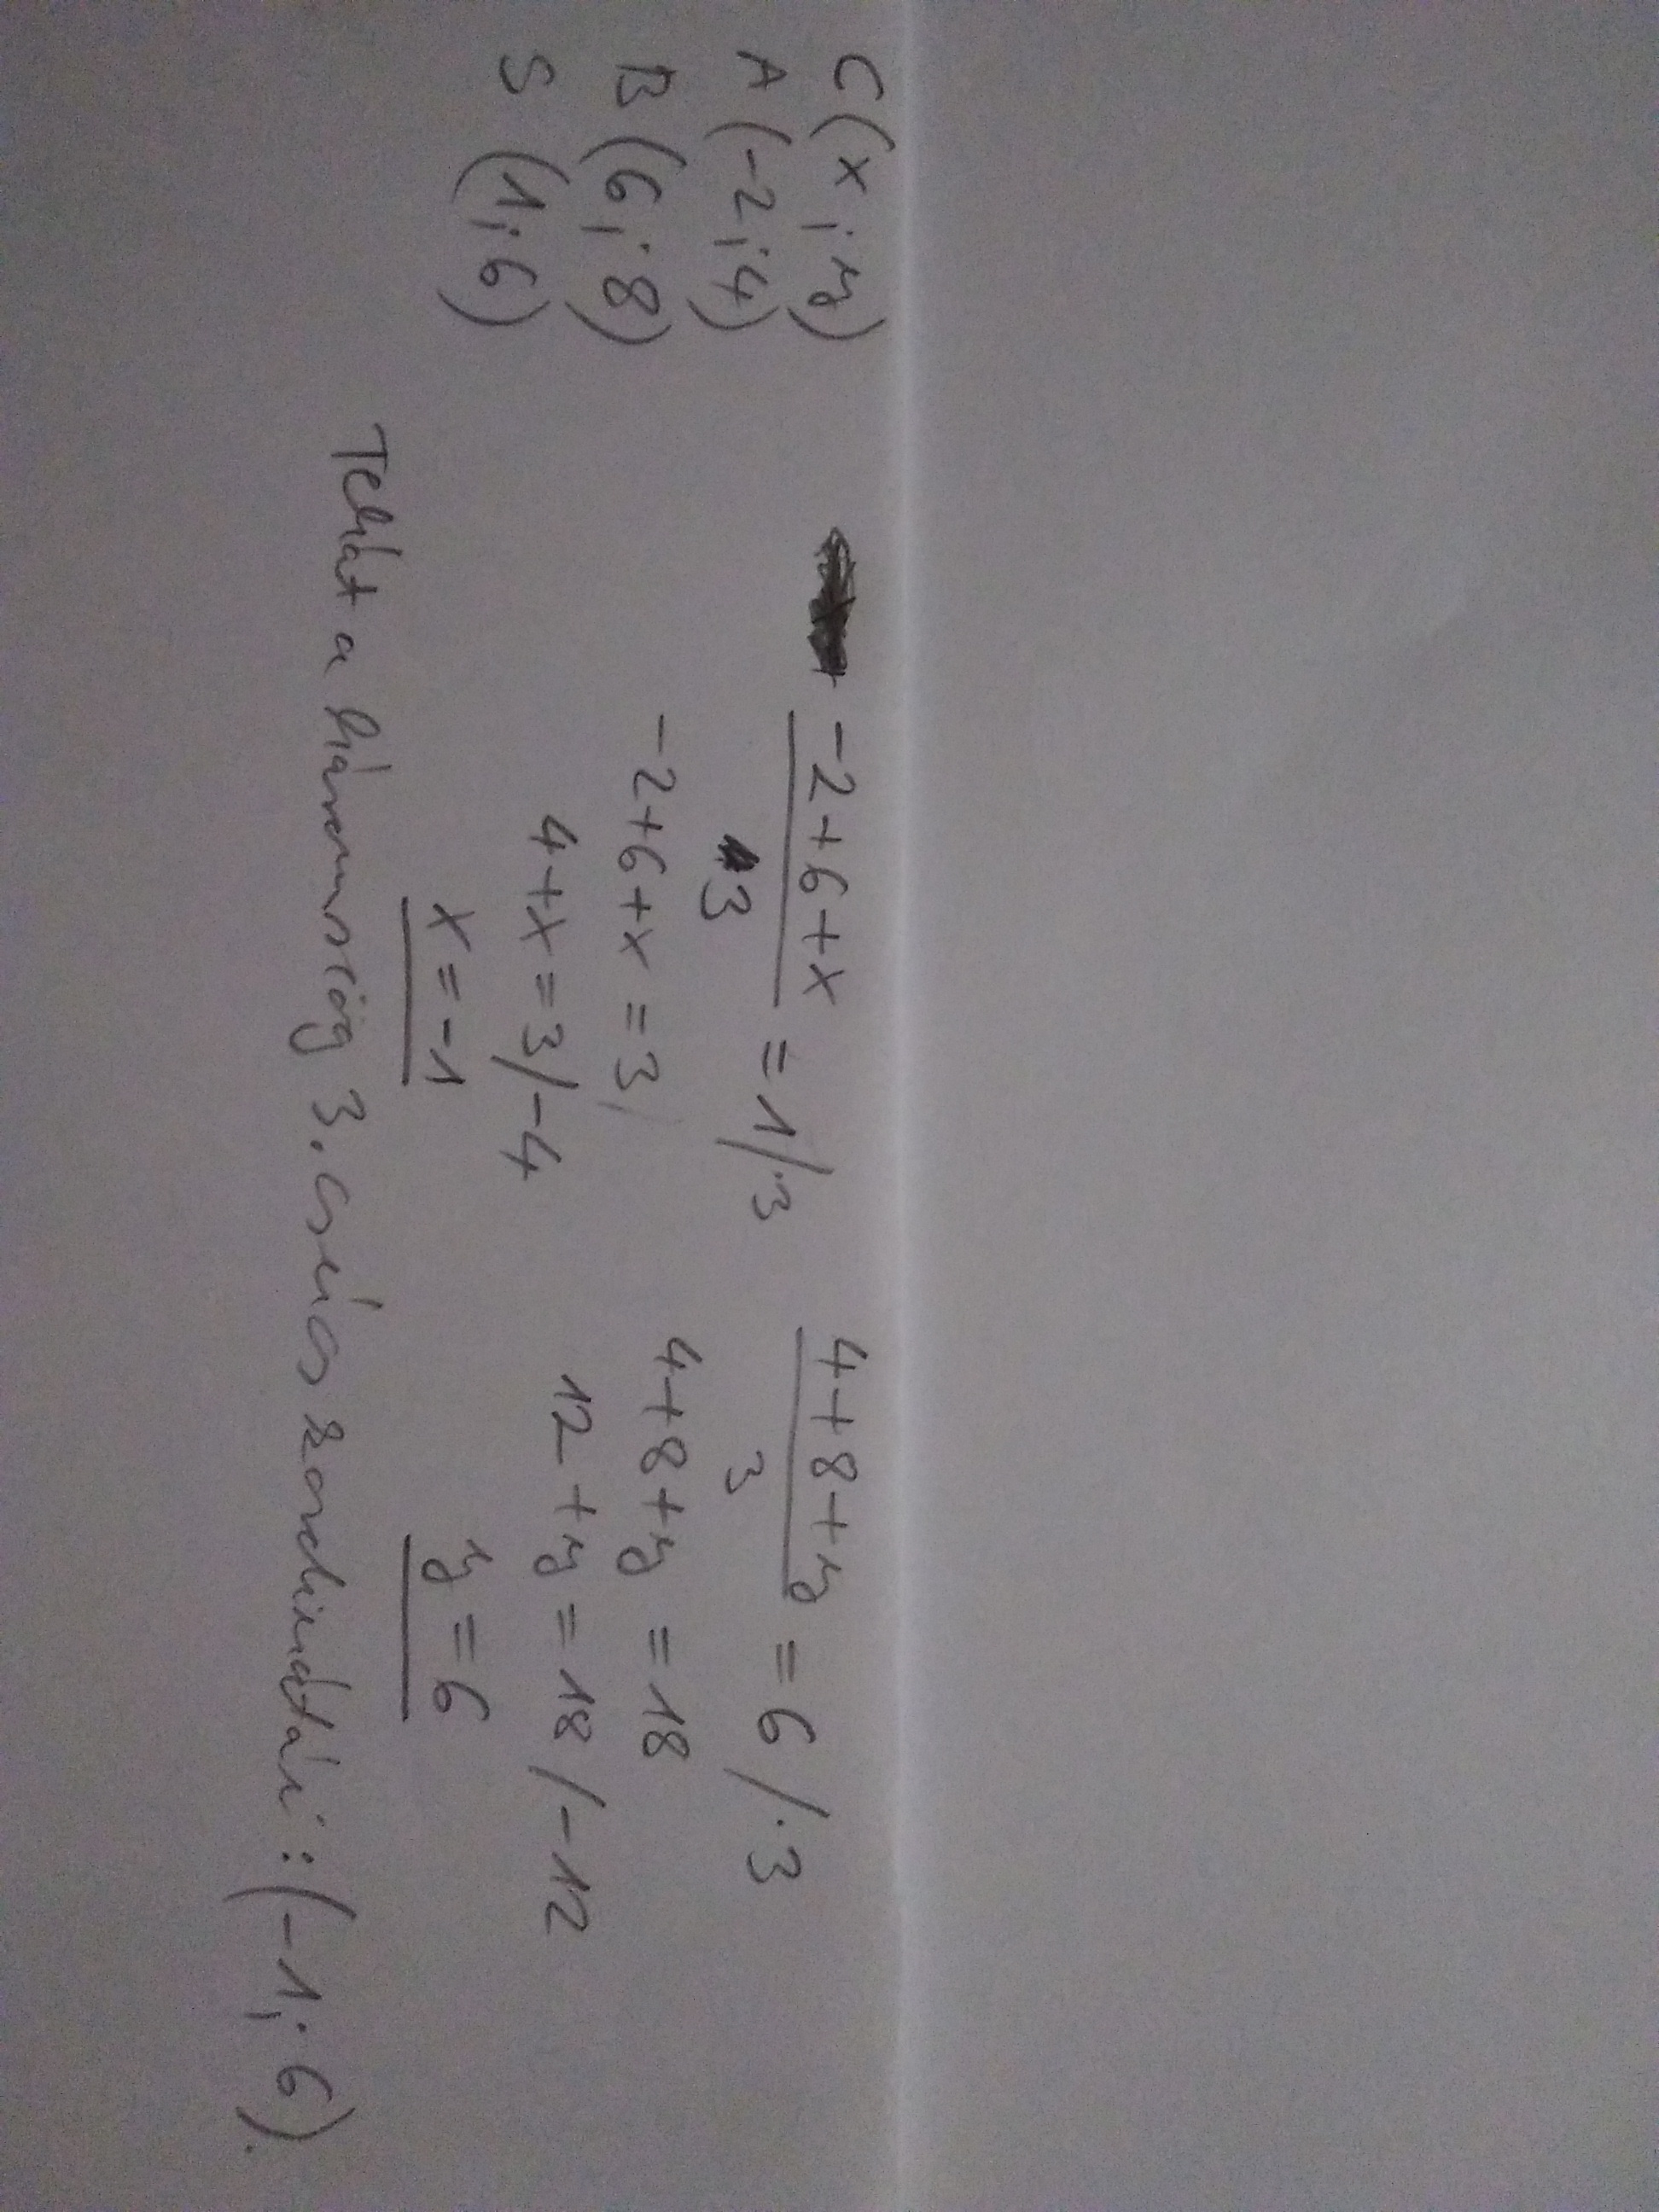 C(x;y)
A(-2;4)
B(6;8)
S(1;6)
-2+6+x
3
=1/·3
-2+6+x=3
4+x=3/-4
x=-1
4+8+y
3
=6/·3
4+8+y=18
12+y=18/-12
y=6
Tehát a háromszög 3. csúcs koordinátái: (-1;6).